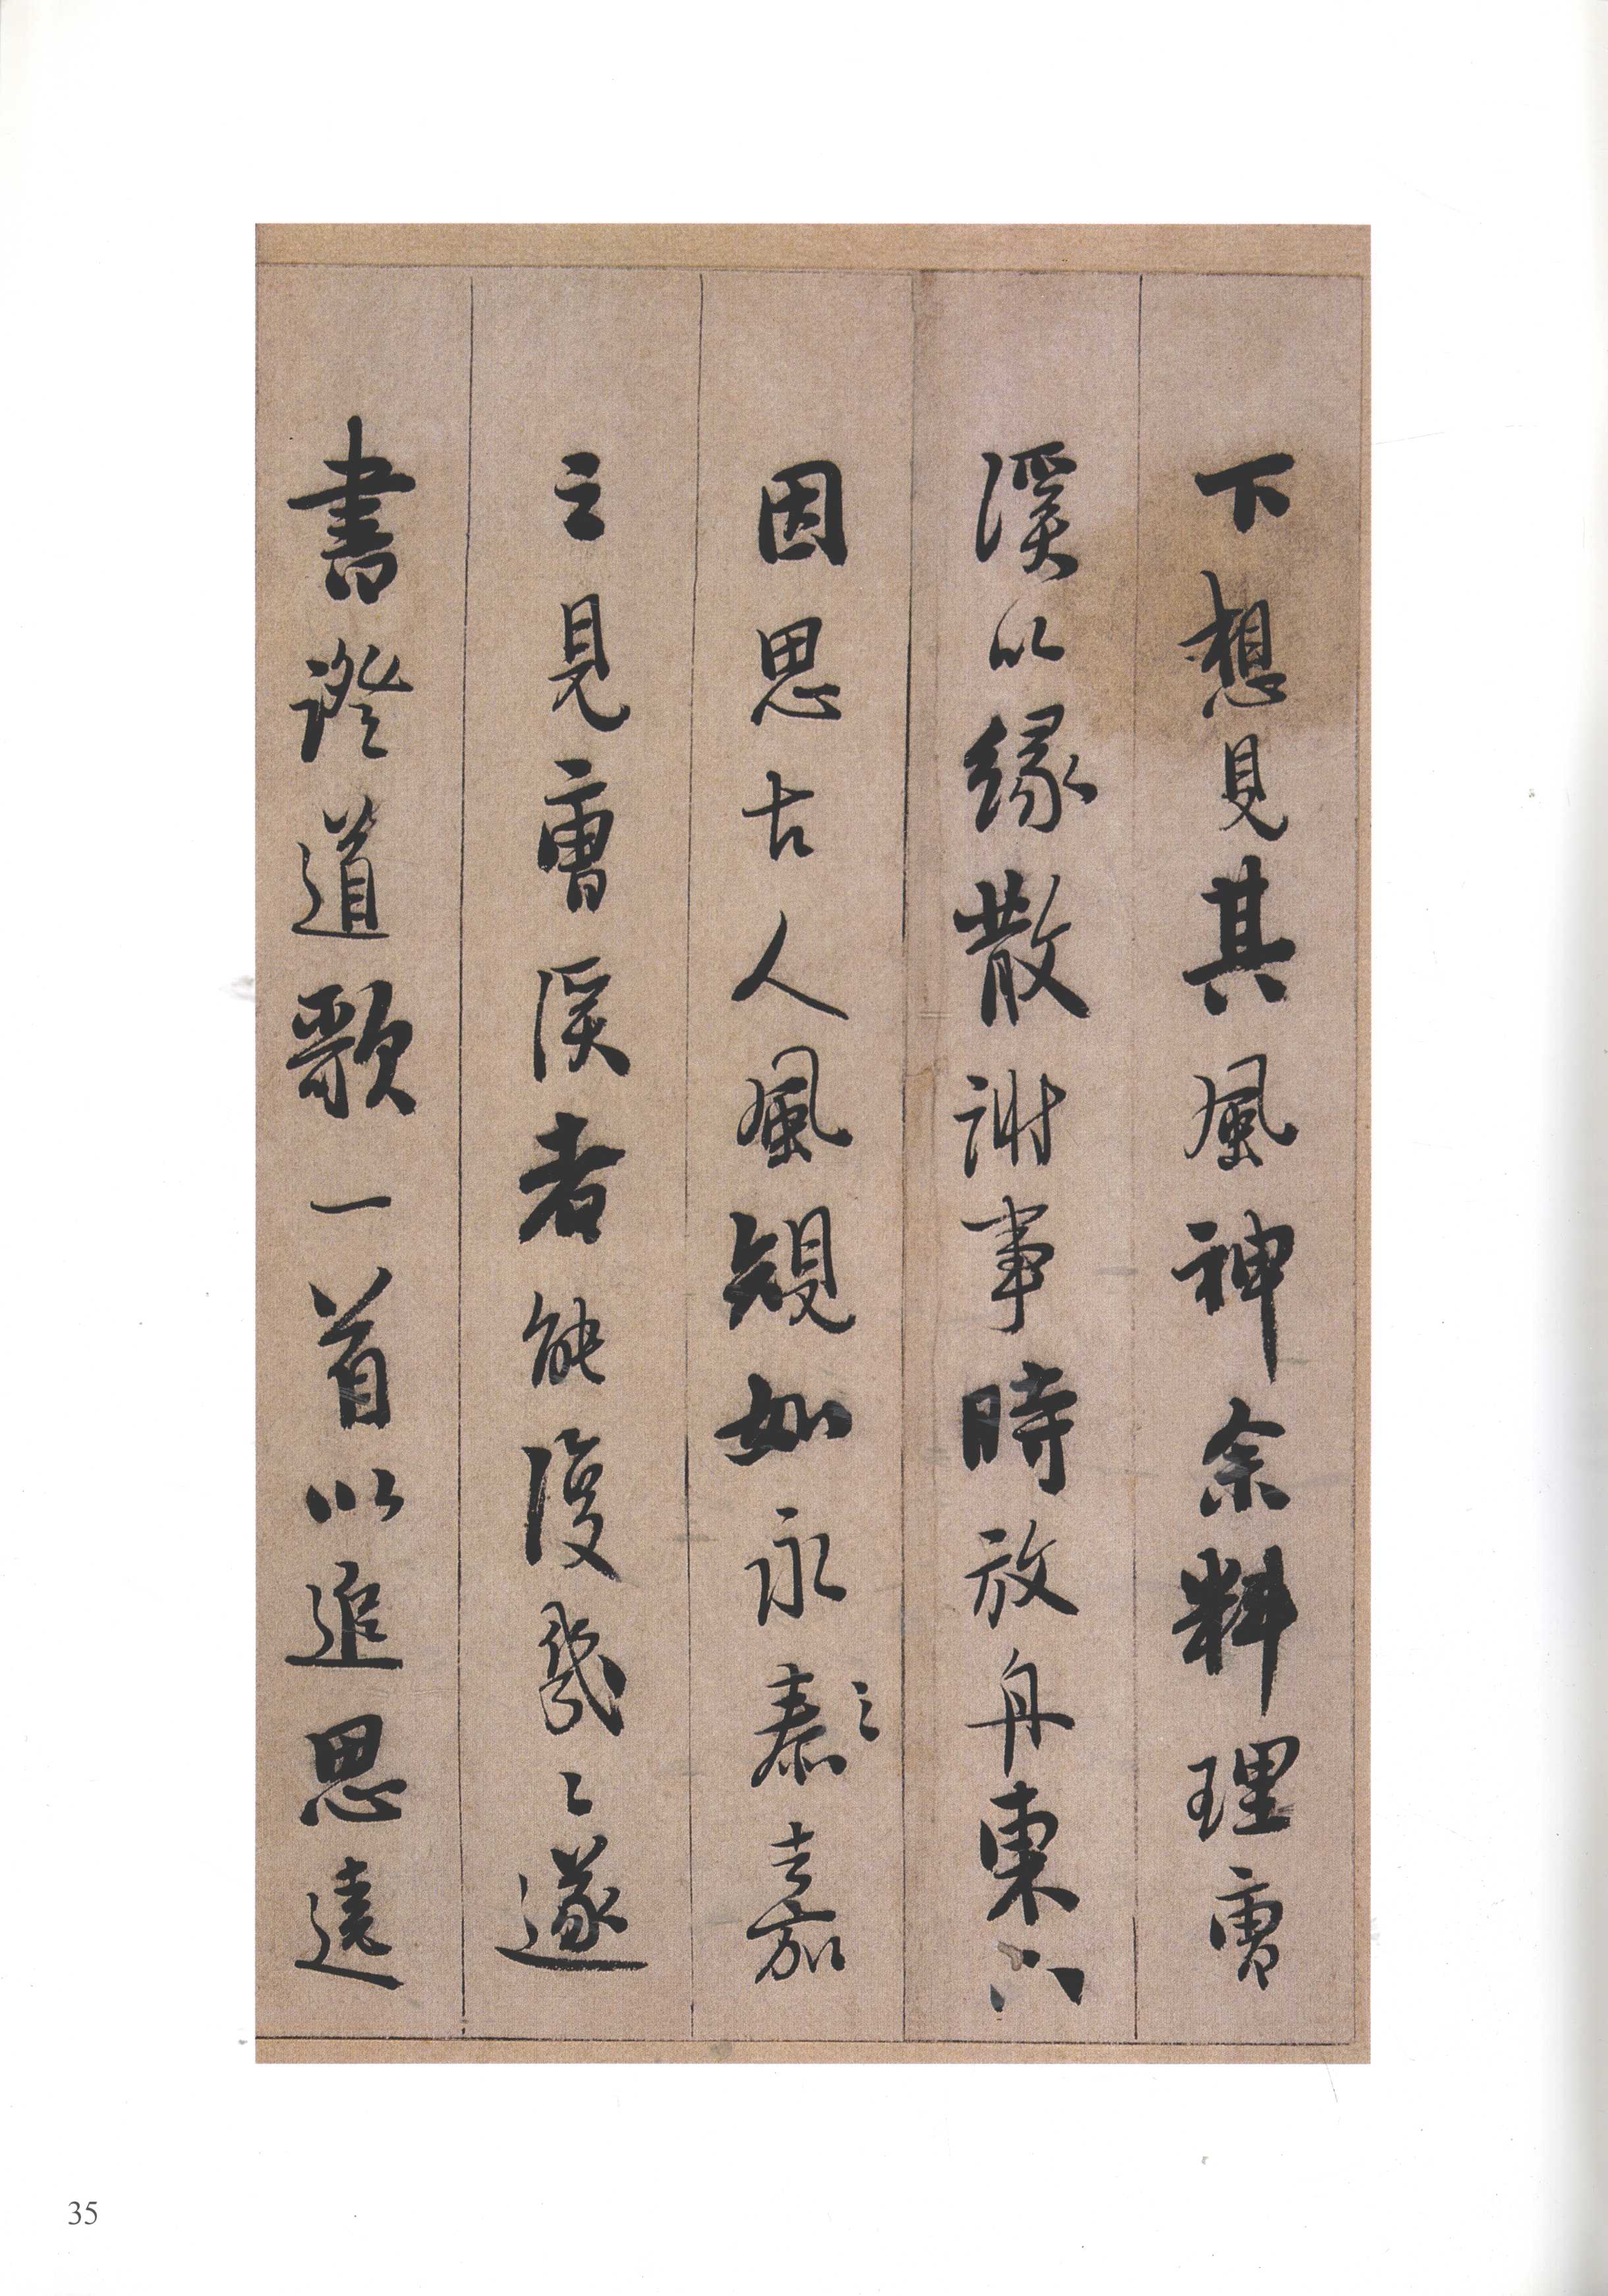 下想見其風神余料理曹
溪以緣散謝事時放舟東下
因思古人風規如永泰嘉
之見曹溪者能復幾〻遂
書證道歌一首以追思遠
35